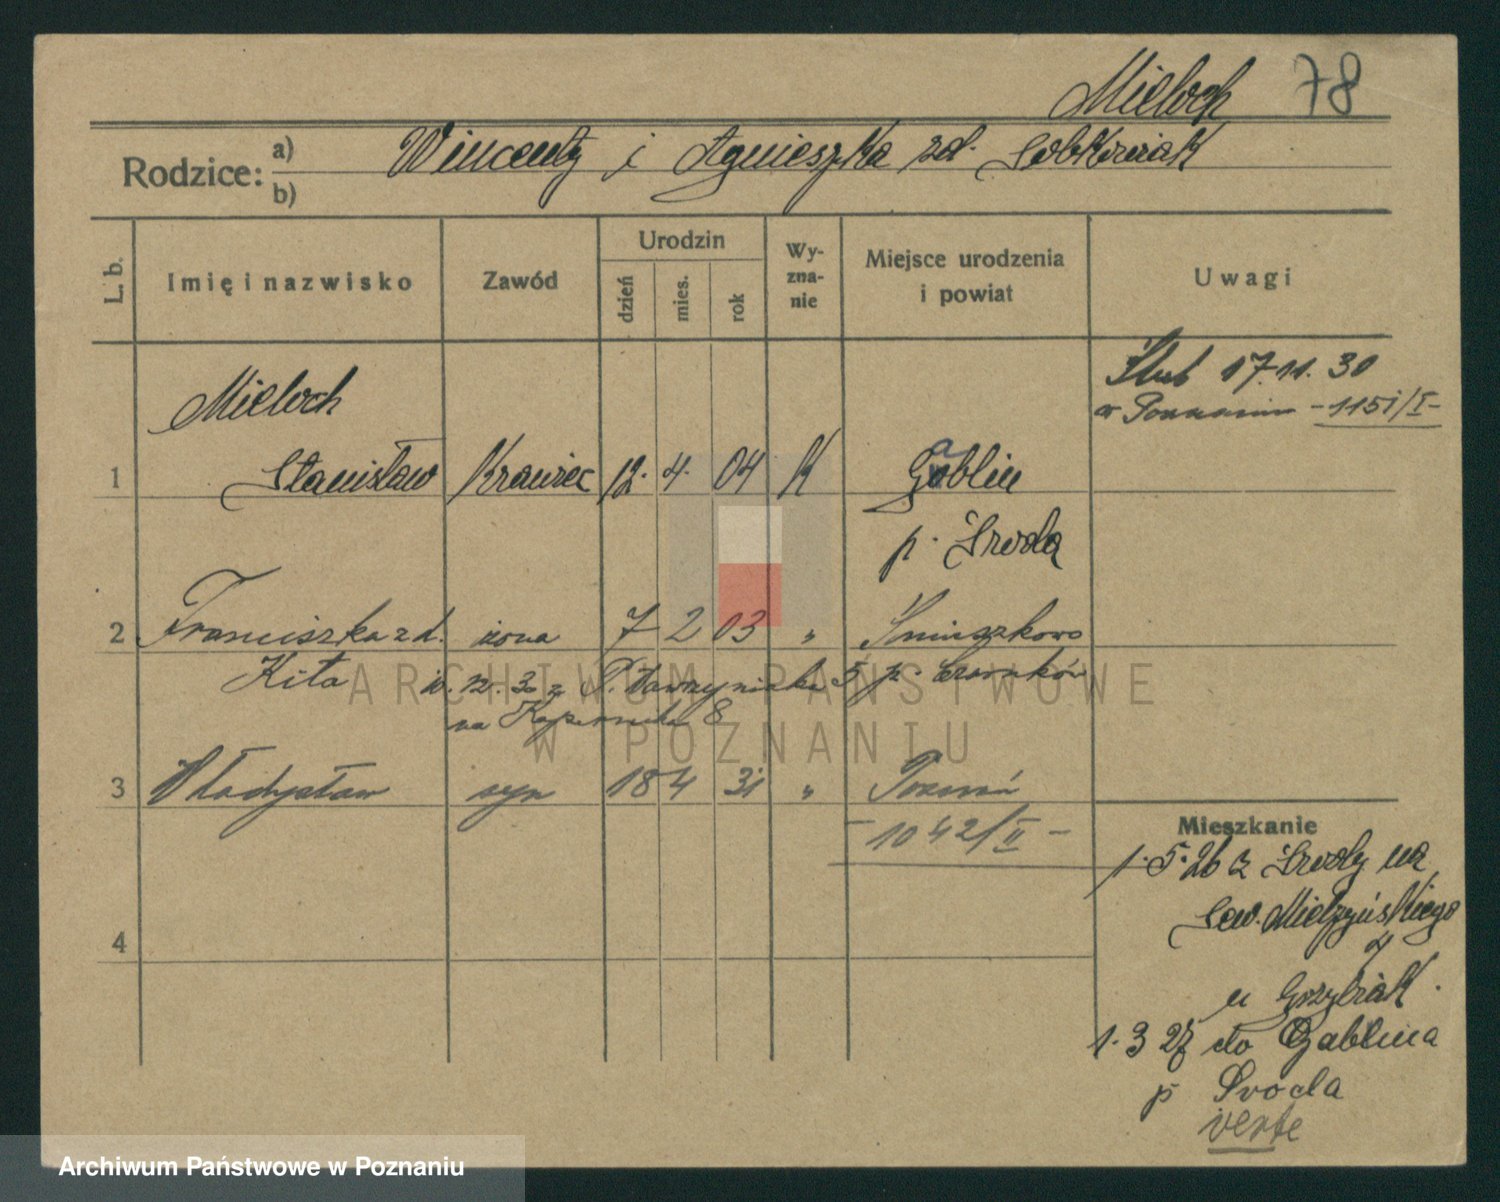 Mieloch 78
Rodzice: a) b) Wincenty i Agnieszka zd. Sobkowiak
L. b. Imię i nazwisko Zawód Urodzin dzień mies. rok Wy-zna-nie Miejsce urodzenia i powiat Uwagi
Ślub 17.11.30
w Poznaniu - 1151/I -
Mieloch
1 Stanisław Krawiec 12. 4. 04 K Gablin
p. Środa
2 Franciszka zd. żona 7 2 03 "
Kita p. Czarnków
na Kopernika 8
3 Władysław syn 18 4 31 " Poznań
- 1042/II -
Mieszkanie
1.5.26 z Środy na
Sew. Mielżyńskiego
4
u Grzybiak.
1.3 27 do Gablina
p Środa
verte
ARCHIWUM PAŃSTWOWE
W POZNANIU
Archiwum Państwowe w Poznaniu